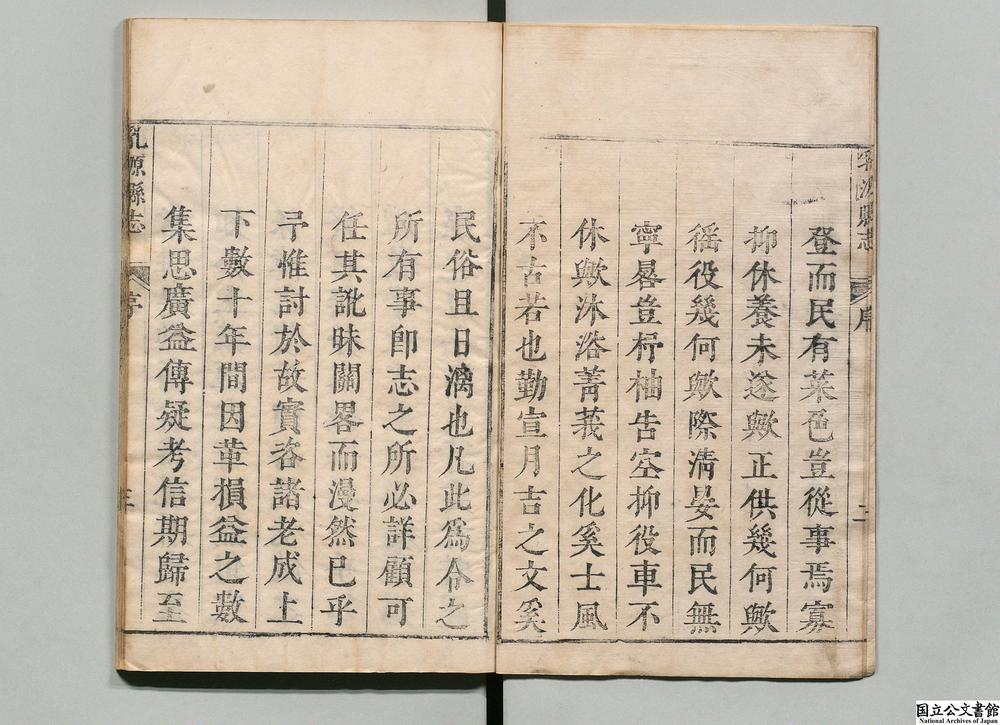 登而民有菜色豈從事焉寡
抑休養未遂歟正供幾何歟
徭役幾何歟際淸晏而民無
寧晷豈杼柚告空抑役車不
休歟沐浴菁莪之化奚士風
不古若也勤宣月吉之文奚
序
二
民俗且日漓也凡此爲令之
所有事卽志之所必詳顧可
任其訛昧闕畧而漫然已乎
予惟討於故實咨諸老成上
下數十年間因革損益之數
集思廣益傳疑考信期歸至
乳源縣志
序
三
国立公文書館
National Archives of Japan